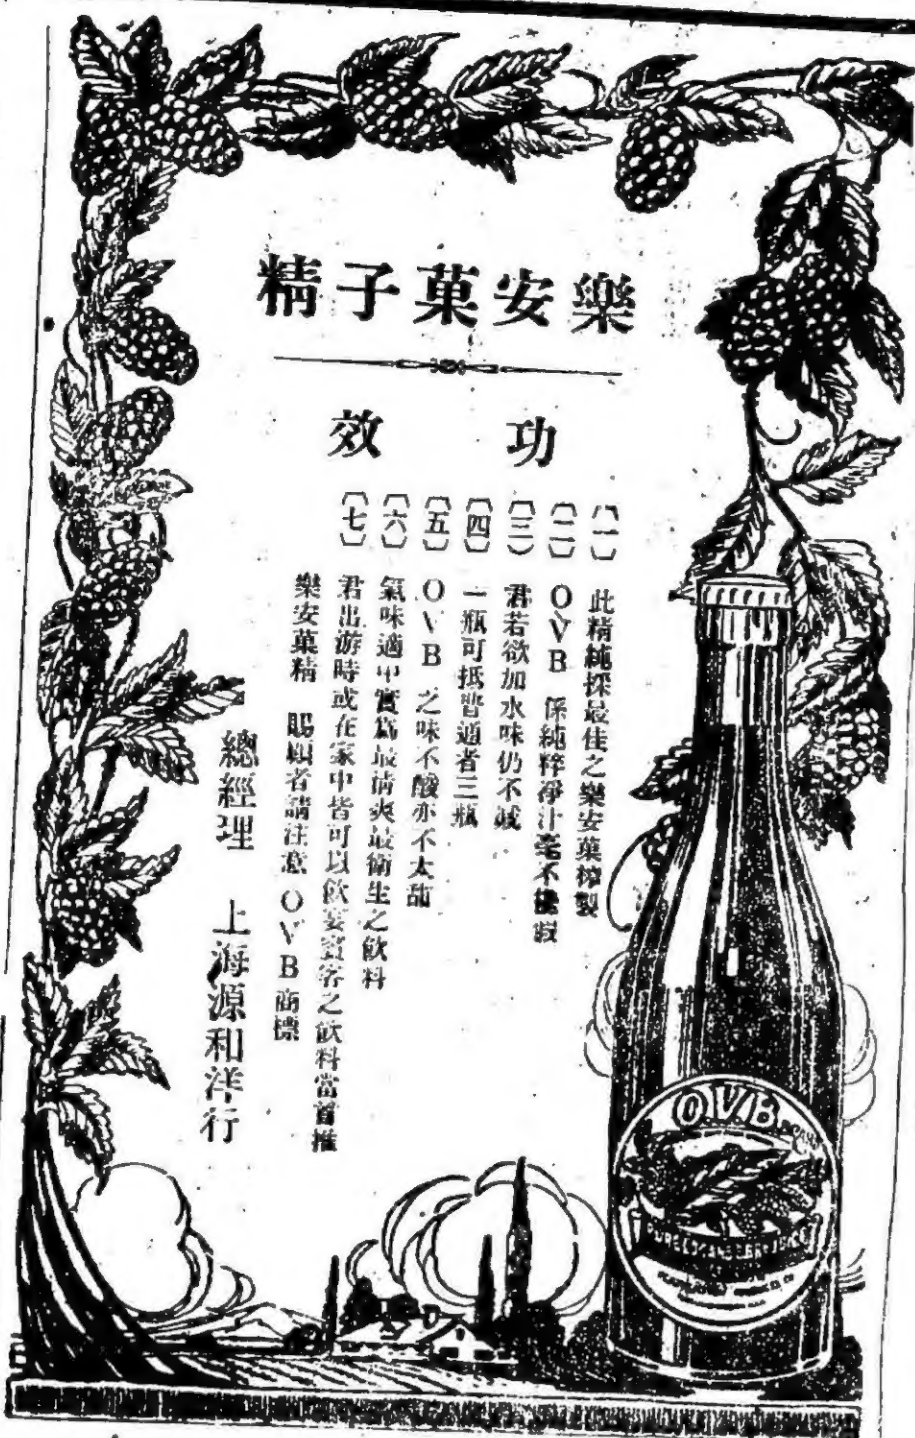 樂安菓子精
功效
〔一〕 此精純採最佳之樂安菓榨製
〔二〕 OVB 係純粹淨汁毫不攙假
〔三〕 君若欲加水味仍不減
〔四〕 一瓶可抵普通者三瓶
〔五〕 OVB 之味不酸亦不太甜
〔六〕 氣味適中實爲最清爽最衛生之飲料
〔七〕 君出游時或在家中皆可以飲宴賓客之飲料當首推
樂安菓精 賜顧者請注意 OVB 商標
總經理 上海源和洋行
O.V.B. BRAND
PURE LOGANBERRY JUICE